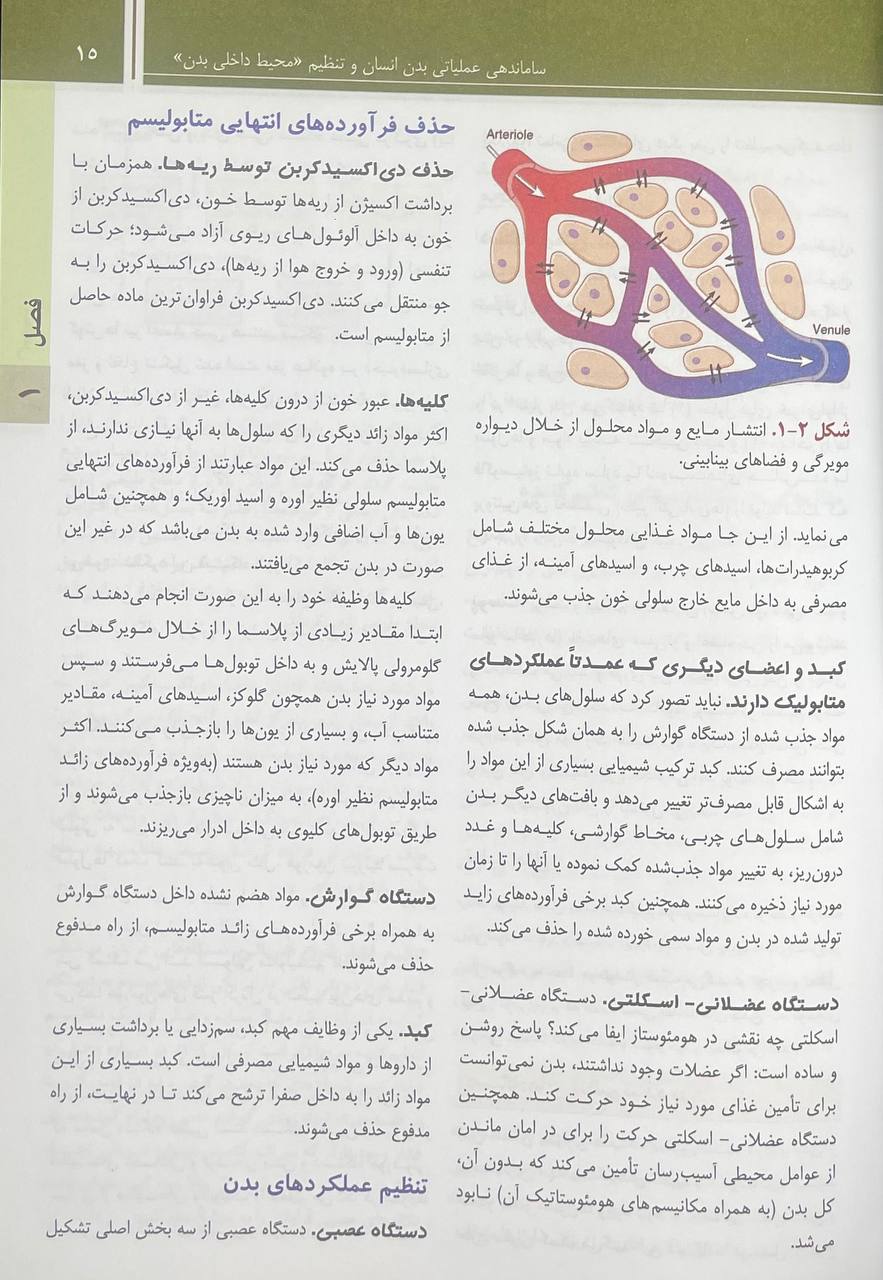 ساماندهی عملیاتی بدن انسان و تنظیم «محیط داخلی بدن»
۱۵
فصل
۱
Arteriole
Venule
شکل ۲-۱. انتشار مایع و مواد محلول از خلال دیواره
مویرگی و فضاهای بینابینی.
می‌نماید. از این جا مواد غذایی محلول مختلف شامل
کربوهیدرات‌ها، اسیدهای چرب، و اسیدهای آمینه، از غذای
مصرفی به داخل مایع خارج سلولی خون جذب می‌شوند.
کبد و اعضای دیگری که عمدتاً عملکردهای
متابولیک دارند. نباید تصور کرد که سلول‌های بدن، همه
مواد جذب شده از دستگاه گوارش را به همان شکل جذب شده
بتوانند مصرف کنند. کبد ترکیب شیمیایی بسیاری از این مواد را
به اشکال قابل مصرف‌تر تغییر می‌دهد و بافت‌های دیگر بدن
شامل سلول‌های چربی، مخاط گوارشی، کلیه‌ها و غدد
درون‌ریز، به تغییر مواد جذب‌شده کمک نموده یا آنها را تا زمان
مورد نیاز ذخیره می‌کنند. همچنین کبد برخی فرآورده‌های زاید
تولید شده در بدن و مواد سمی خورده شده را حذف می‌کند.
دستگاه عضلانی- اسکلتی. دستگاه عضلانی-
اسکلتی چه نقشی در هومئوستاز ایفا می‌کند؟ پاسخ روشن
و ساده است: اگر عضلات وجود نداشتند، بدن نمی‌توانست
برای تأمین غذای مورد نیاز خود حرکت کند. همچنین
دستگاه عضلانی- اسکلتی حرکت را برای در امان ماندن
از عوامل محیطی آسیب‌رسان تأمین می‌کند که بدون آن،
کل بدن (به همراه مکانیسم‌های هومئوستاتیک آن) نابود
می‌شد.
حذف فرآورده‌های انتهایی متابولیسم
حذف دی‌اکسیدکربن توسط ریه‌ها. همزمان با
برداشت اکسیژن از ریه‌ها توسط خون، دی‌اکسیدکربن از
خون به داخل آلوئول‌های ریوی آزاد می‌شود؛ حرکات
تنفسی (ورود و خروج هوا از ریه‌ها)، دی‌اکسیدکربن را به
جو منتقل می‌کنند. دی‌اکسیدکربن فراوان‌ترین ماده حاصل
از متابولیسم است.
کلیه‌ها. عبور خون از درون کلیه‌ها، غیر از دی‌اکسیدکربن،
اکثر مواد زائد دیگری را که سلول‌ها به آنها نیازی ندارند، از
پلاسما حذف می‌کند. این مواد عبارتند از فرآورده‌های انتهایی
متابولیسم سلولی نظیر اوره و اسید اوریک؛ و همچنین شامل
یون‌ها و آب اضافی وارد شده به بدن می‌باشد که در غیر این
صورت در بدن تجمع می‌یافتند.
کلیه‌ها وظیفه خود را به این صورت انجام می‌دهند که
ابتدا مقادیر زیادی از پلاسما را از خلال مویرگ‌های
گلومرولی پالایش و به داخل توبول‌ها می‌فرستند و سپس
مواد مورد نیاز بدن همچون گلوکز، اسیدهای آمینه، مقادیر
متناسب آب، و بسیاری از یون‌ها را بازجذب می‌کنند. اکثر
مواد دیگر که مورد نیاز بدن هستند (به‌ویژه فرآورده‌های زائد
متابولیسم نظیر اوره)، به میزان ناچیزی بازجذب می‌شوند و از
طریق توبول‌های کلیوی به داخل ادرار می‌ریزند.
دستگاه گوارش. مواد هضم نشده داخل دستگاه گوارش
به همراه برخی فرآورده‌های زائد متابولیسم، از راه مدفوع
حذف می‌شوند.
کبد. یکی از وظایف مهم کبد، سم‌زدایی یا برداشت بسیاری
از داروها و مواد شیمیایی مصرفی است. کبد بسیاری از این
مواد زائد را به داخل صفرا ترشح می‌کند تا در نهایت، از راه
مدفوع حذف می‌شوند.
تنظیم عملکردهای بدن
دستگاه عصبی. دستگاه عصبی از سه بخش اصلی تشکیل